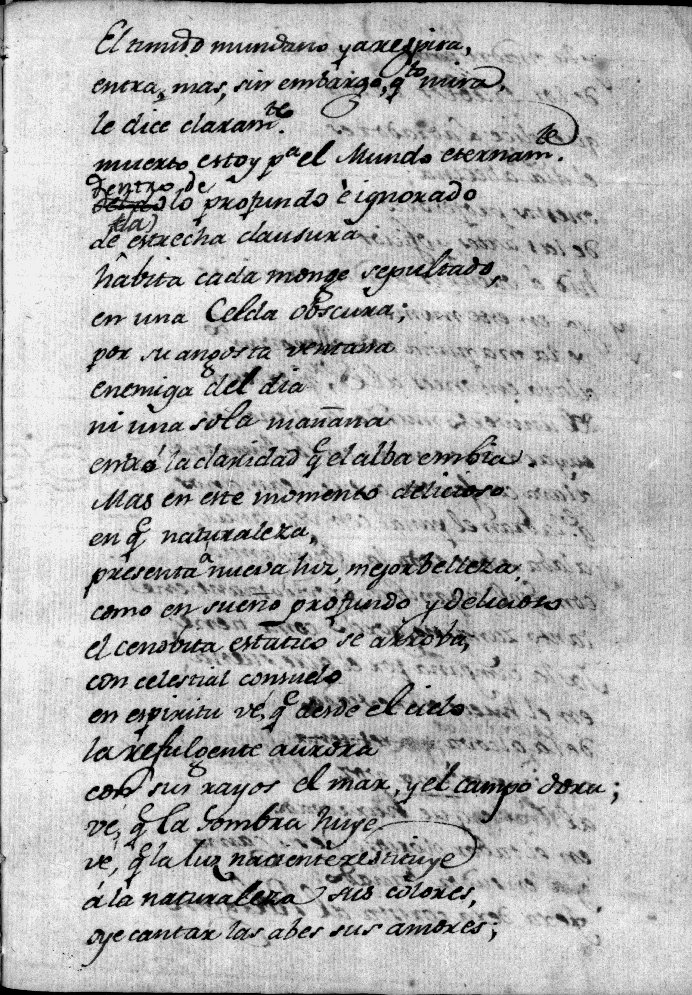 El timido mundano ya respira,
entra, mas, sin embargo, q.to mira,
le dice claram.te
muerto estoy p.a el Mundo eternam.te.
Dentro de
lo profundo è ignorado
(la)
de estrecha clausura
hâbita cada monge sepultado
en una Celda obscura;
por su angosta ventana
enemiga del dia
ni una sola mañana
entró la claridad q.e el alba embia.
Mas en este momento delicioso
en q.e naturaleza,
presenta a nueva luz, mejor belleza,
como en sueño profundo y delicioso
el cenobita estatico se arroba,
con celestial consuelo
en espiritu vé, q.e desde el cielo
la refulgente aurora
con sus rayos el mar, y el campo dora;
vé, q.e la sombra huye
vé, q.e la luz naciente restituye
á la naturaleza sus colores,
oye cantar las abes sus amores;